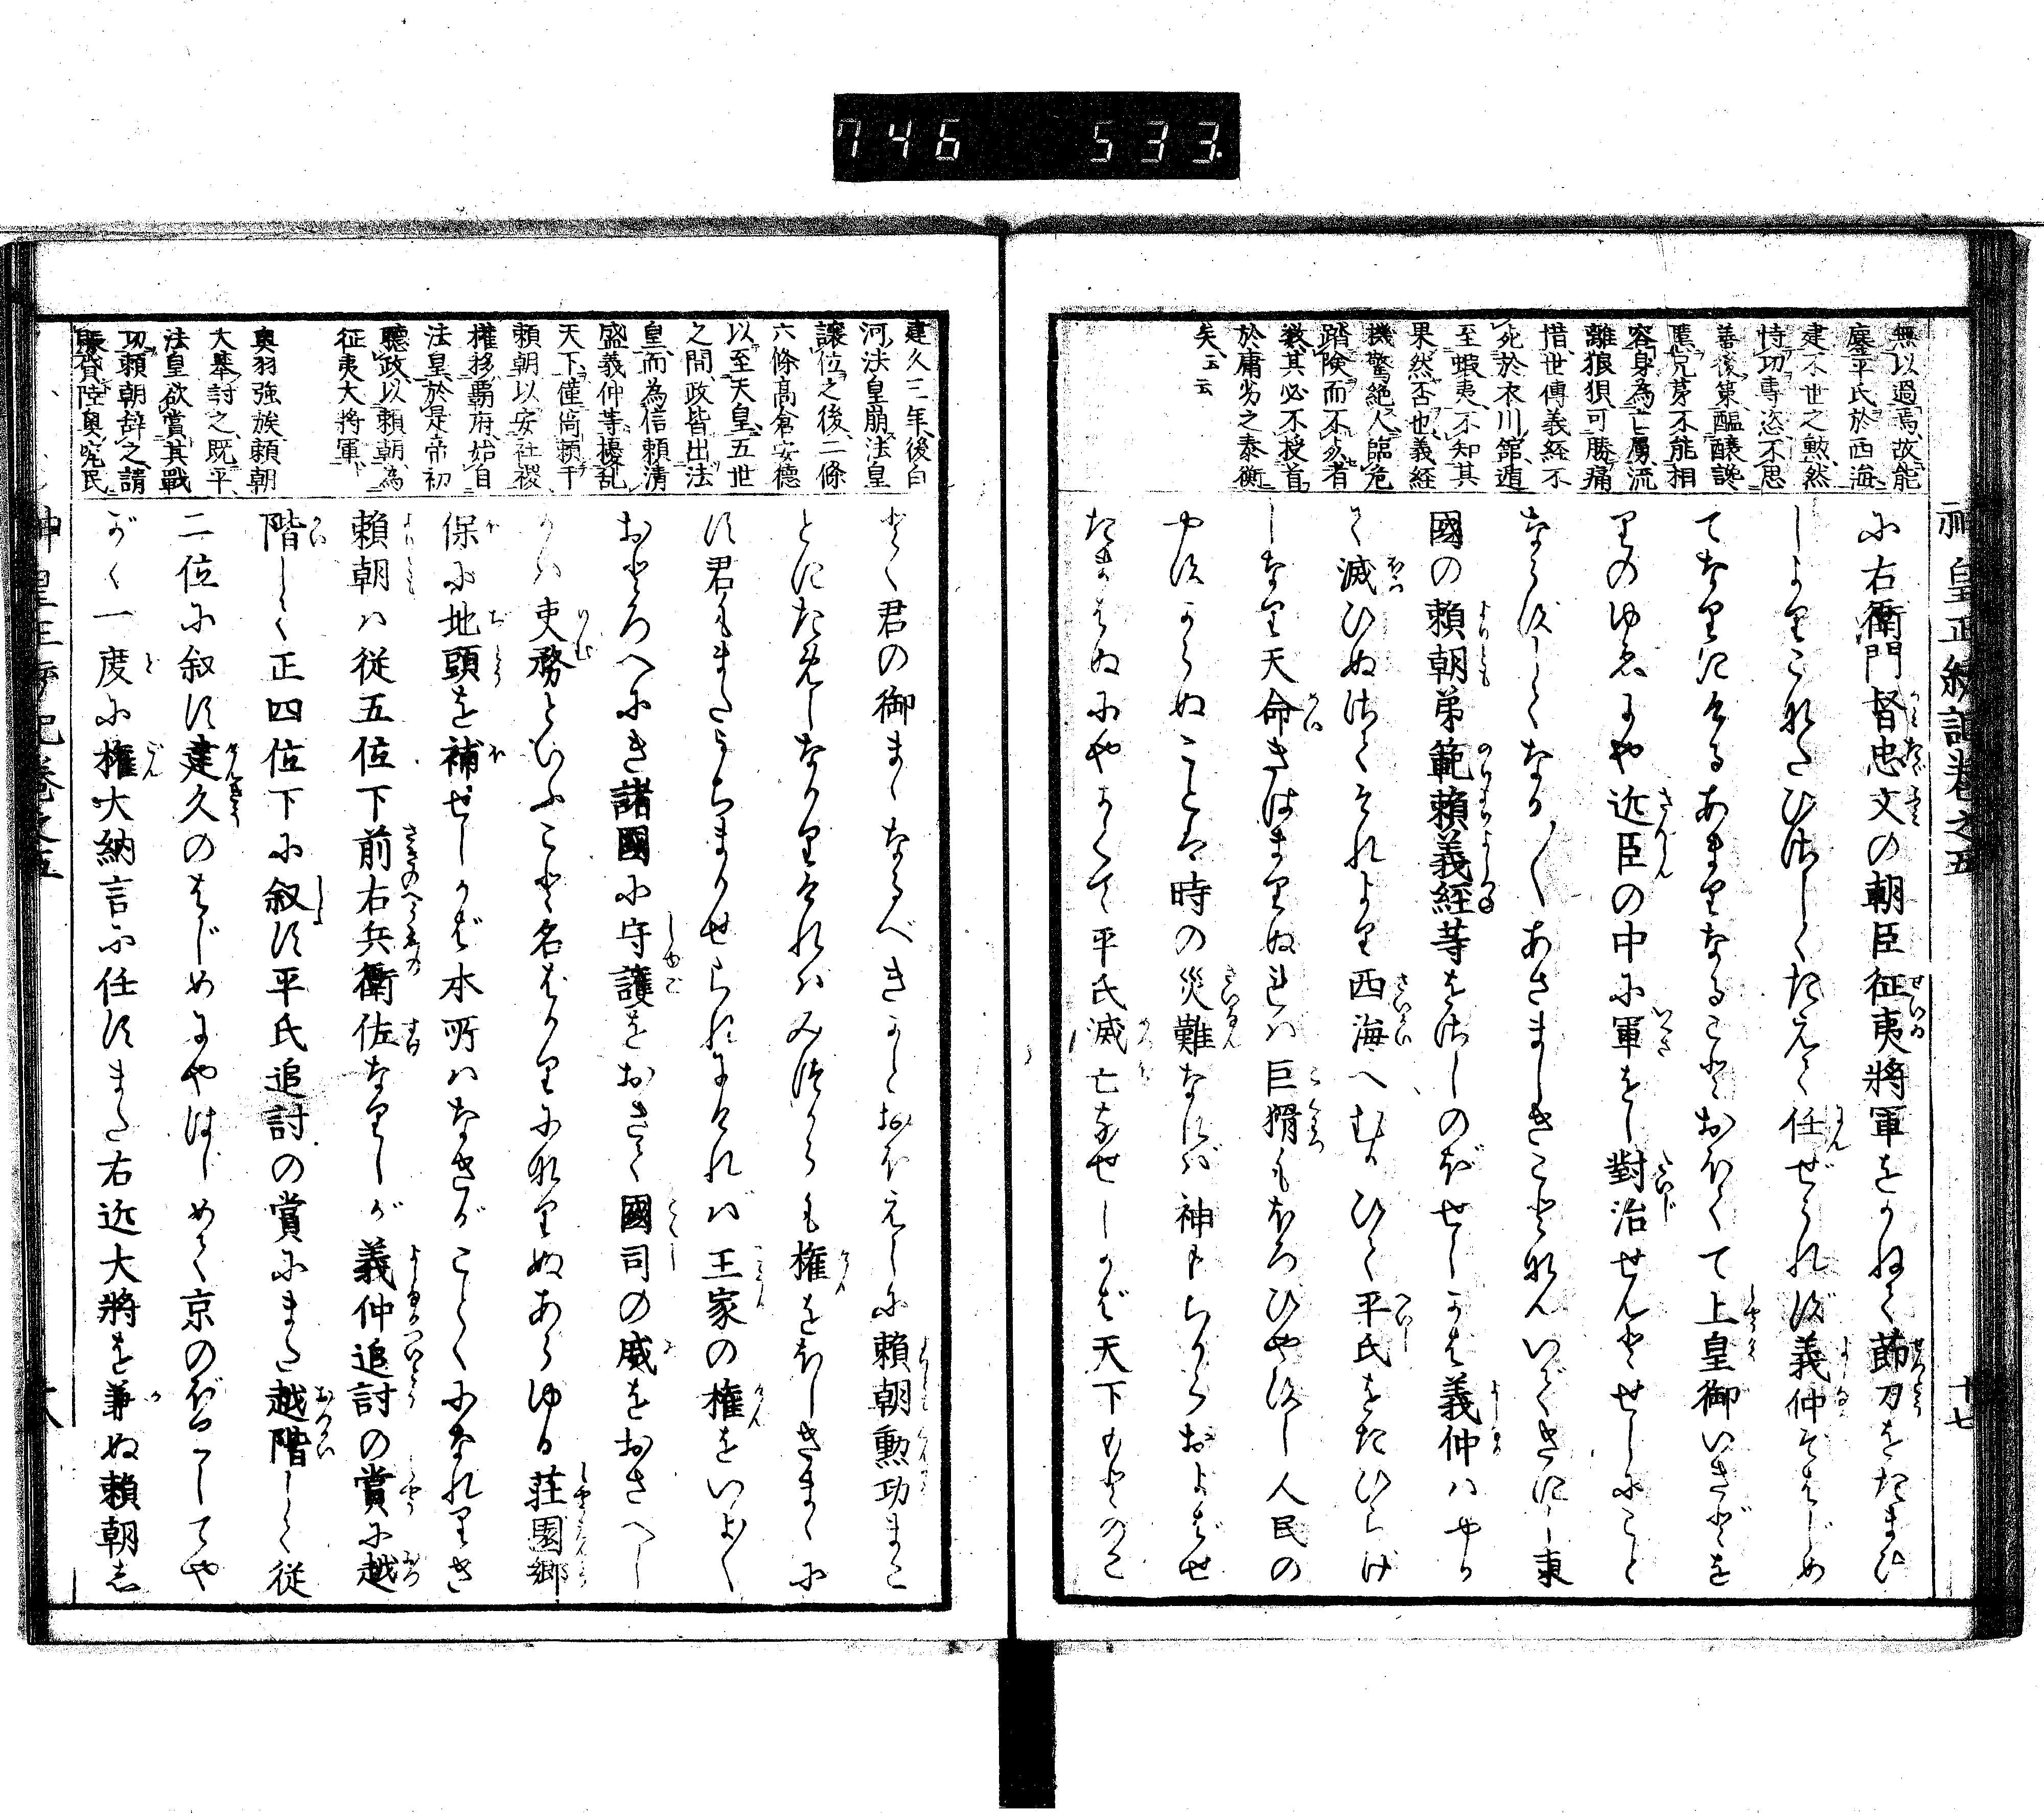 神皇正統記巻之五
十七
無以過焉故能
塵平氏於西海
建不世之勲然
恃功專恣不思
善後策醞釀讒
慝兄弟不能相
容身為亡虜流
離狼狽可勝痛
惜世傳義経不
死於衣川館逍
至蝦夷不知其
果然否也義経
機警絶人臨危
踏険而不必者
数其必不授首
於庸劣之泰衡
矣云云
に右衛門督忠文の朝臣征夷將軍をかねて節刀をたまひ
しよりこのかたひさしくたえて任ぜられず義仲ぞはじめ
てなりにけるあまりなることおほくて上皇御いきどを
りのゆゑにや近臣の中に軍をし對治せんとせしにこと
ならずしてなか〳〵あさましきことなんいできにし東
國の賴朝弟範賴義経等をさしのぼせしかば義仲はやか
て滅びぬさてそれより西海へむかひて平氏をたひらげ
しなり天命きはまりぬれば巨猾もほろびやすし人民の
やすからぬことは時の災難なれば神もちからおよばせ
たまはぬにやかくて平氏滅亡なせしかば天下もとのご
建久三年後白
河法皇崩法皇
譲位之後二條
六條高倉安德
以至天皇五世
之間政皆出法
皇而為信頼清
盛義仲等擾乱
天下僅倚賴于
賴朝以安社稷
權移覇府始自
法皇於是帝初
聽政以賴朝為
征夷大將軍
奥羽強族賴朝
大擧討之既平
法皇欲賞其戰
功賴朝辞之請
賑貸陸奥究民
とく君の御まゝなるべきかとおぼえしに賴朝勲功まこ
とにためしなかりければみづからも權をほしきまゝに
す君もまたうちまかせられにければ王家の權をいよ〳〵
おとろへにき諸國に守護をおきて國司の威をおさへし
かば吏務といふこと名ばかりになりぬあらゆる荘園郷
保に地頭を補せしかば本所はなきがごとくになれりき
賴朝は従五位下前右兵衛佐なりしが義仲追討の賞に越
階して正四位下に叙す平氏追討の賞にまた越階して従
二位に叙す建久のはじめにやはじめて京のぼりしてや
がて一度に權大納言に任すまた右近大將を兼ぬ賴朝し
746 533.